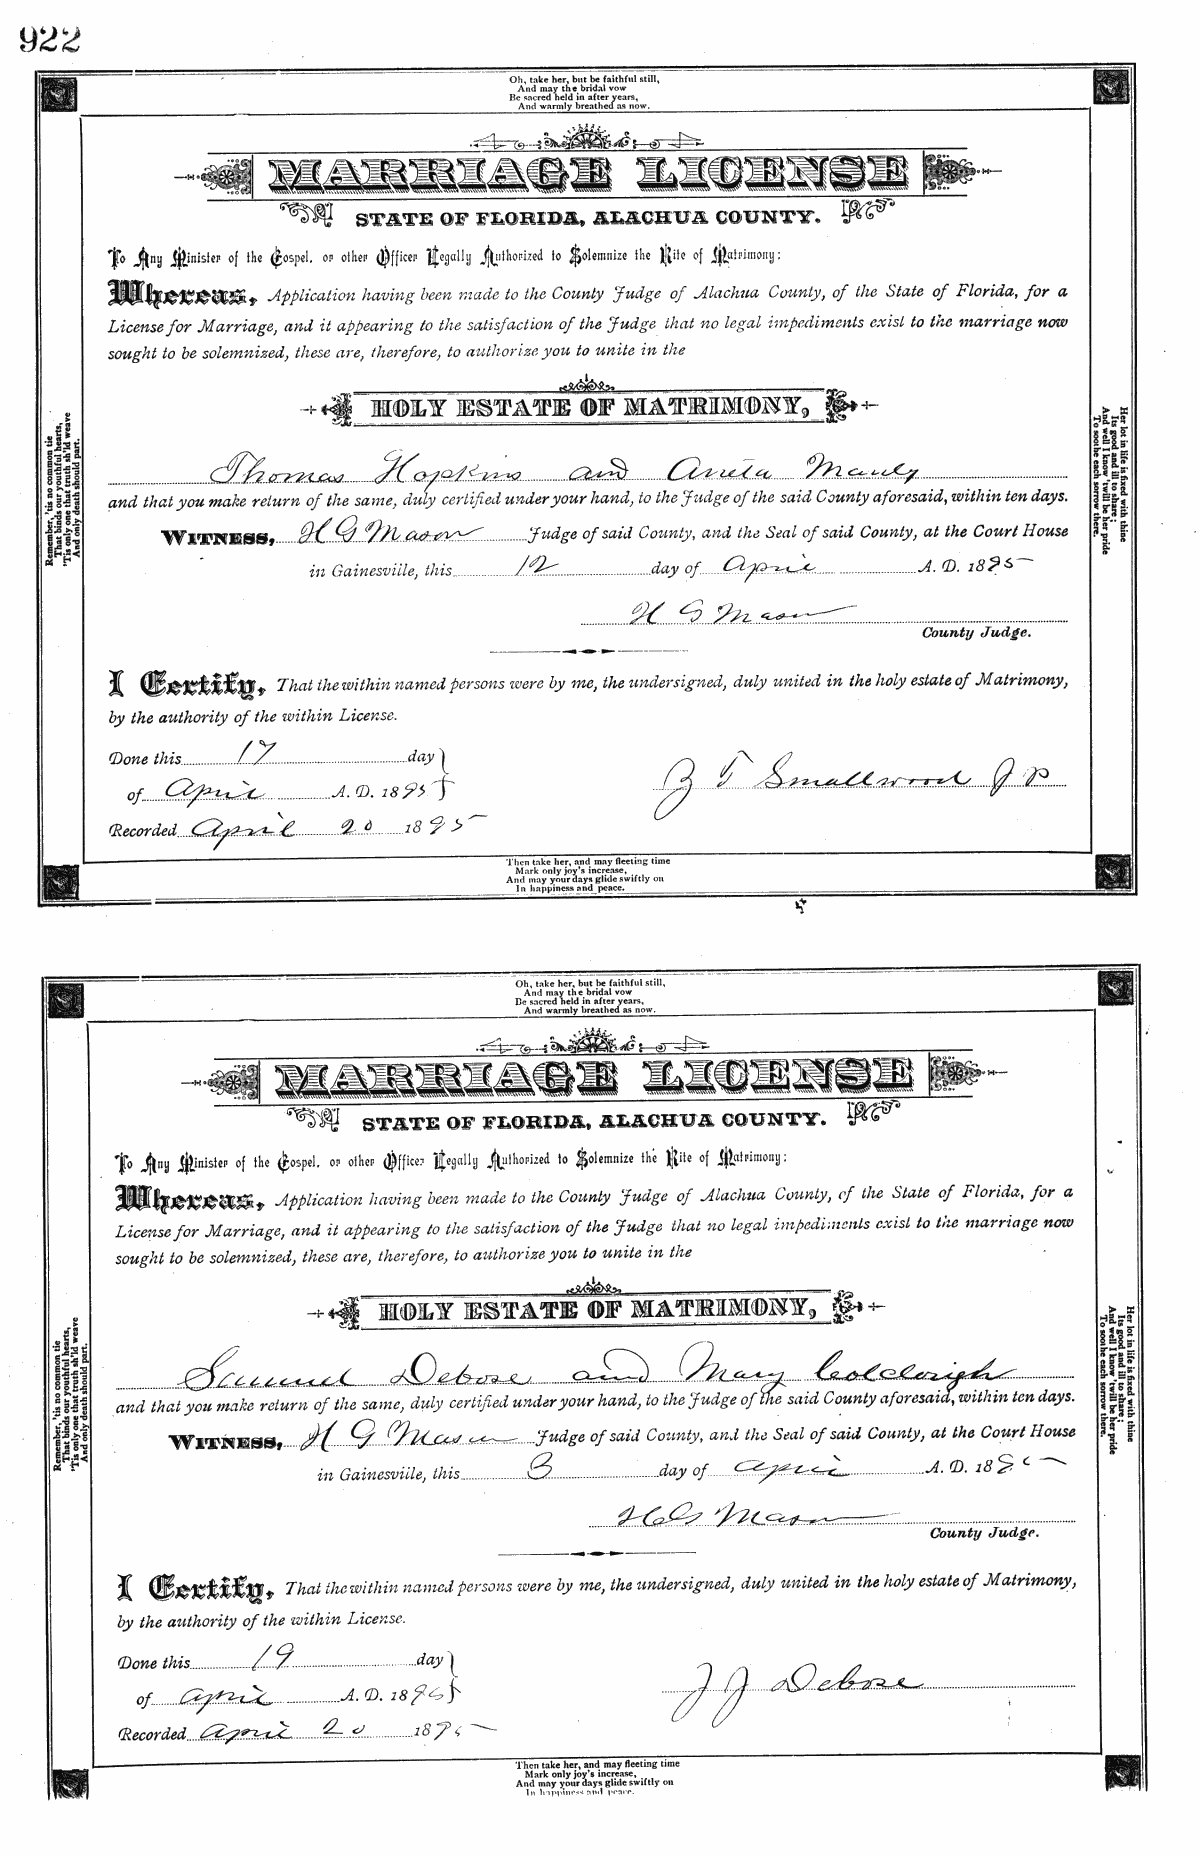 922
Oh, take her, but be faithful still,
And may the bridal vow
Be sacred held in after years,
And warmly breathed as now.
MARRIAGE LICENSE
STATE OF FLORIDA, ALACHUA COUNTY.
To Any Minister of the Gospel, or other Officer Legally Authorized to Solemnize the Rite of Matrimony:
Whereas, Application having been made to the County Judge of Alachua County, of the State of Florida, for a
License for Marriage, and it appearing to the satisfaction of the Judge that no legal impediments exist to the marriage now
sought to be solemnized, these are, therefore, to authorize you to unite in the
HOLY ESTATE OF MATRIMONY,
Thomas Hopkins and Aneta Manly
and that you make return of the same, duly certified under your hand, to the Judge of the said County aforesaid, within ten days.
WITNESS, H G Mason Judge of said County, and the Seal of said County, at the Court House
in Gainesville, this 12 day of April A. D. 1895
H G Mason
County Judge.
I Certify, That the within named persons were by me, the undersigned, duly united in the holy estate of Matrimony,
by the authority of the within License.
Done this 17 day
of April A. D. 1895
Z T Smallwood J P
Recorded April 20 1895
Remember, 'tis no common tie
That binds our youthful hearts,
'Tis only one that truth sh'ld weave
And only death should part.
Her lot in life is fixed with thine
Its good and ill to share;
And well I know 'twill be her pride
To soohe each sorrow there.
Then take her, and may fleeting time
Mark only joy's increase,
And may your days glide swiftly on
In happiness and peace.
Oh, take her, but be faithful still,
And may the bridal vow
Be sacred held in after years,
And warmly breathed as now.
MARRIAGE LICENSE
STATE OF FLORIDA, ALACHUA COUNTY.
To Any Minister of the Gospel, or other Officer Legally Authorized to Solemnize the Rite of Matrimony:
Whereas, Application having been made to the County Judge of Alachua County, of the State of Florida, for a
License for Marriage, and it appearing to the satisfaction of the Judge that no legal impediments exist to the marriage now
sought to be solemnized, these are, therefore, to authorize you to unite in the
HOLY ESTATE OF MATRIMONY,
Samuel Debose and Mary
and that you make return of the same, duly certified under your hand, to the Judge of the said County aforesaid, within ten days.
WITNESS, H G Mason Judge of said County, and the Seal of said County, at the Court House
in Gainesville, this 3 day of April A. D. 1895
H G Mason
County Judge.
I Certify, That the within named persons were by me, the undersigned, duly united in the holy estate of Matrimony,
by the authority of the within License.
Done this 19 day
of April A. D. 1895
J J Debose
Recorded April 20 1895
Remember, 'tis no common tie
That binds our youthful hearts,
'Tis only one that truth sh'ld weave
And only death should part.
Her lot in life is fixed with thine
Its good and ill to share;
And well I know 'twill be her pride
To soohe each sorrow there.
Then take her, and may fleeting time
Mark only joy's increase,
And may your days glide swiftly on
In happiness and peace.